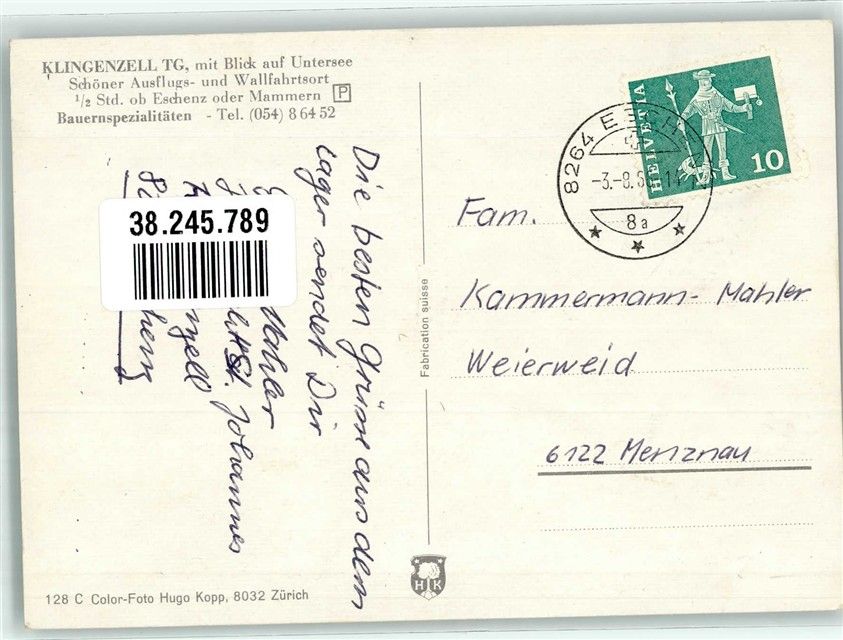 KLINGENZELL TG, mit Blick auf Untersee
Schöner Ausflugs- und Wallfahrtsort
1/2 Std. ob Eschenz oder Mammern P
Bauernspezialitäten - Tel. (054) 8 64 52
Die besten Grüsse aus dem
Lager sendet Dir
Mahler
St. Johannes
38.245.789
Fabrication suisse
HELVETIA
10
8264
-3.-8.
8a
Fam.
Kammermann-Mahler
Weierweid
6122 Menznau
HK
128 C Color-Foto Hugo Kopp, 8032 Zürich